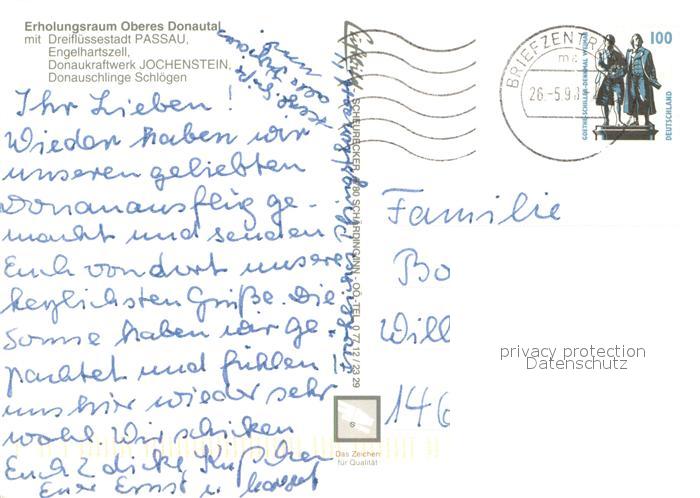 Erholungsraum Oberes Donautal
mit Dreiflüssestadt PASSAU,
Engelhartszell,
Donaukraftwerk JOCHENSTEIN,
Donauschlinge Schlögen
Ihr Lieben!
Wieder haben wir
unseren geliebten
Donauausflug ge-
macht und senden
Euch von dort unsere
herzlichsten Grüße. Die
Sonne haben wir ge-
pachtet und fühlen
uns hier wieder sehr
wohl. Wir schicken
Euch 2 dicke Küßchen
Eure Ernst u.
Fröhliches Pfingstfest
SCHEURECKER
SCHÄRDING/INN - OÖ - TEL. 0 77 12 / 23 29
Das Zeichen
für Qualität
BRIEFZENTR
26.-5.98
100
GOETHE-SCHILLER-DENKMAL WEIMAR
DEUTSCHLAND
Familie
Bo
Will
146
privacy protection
Datenschutz